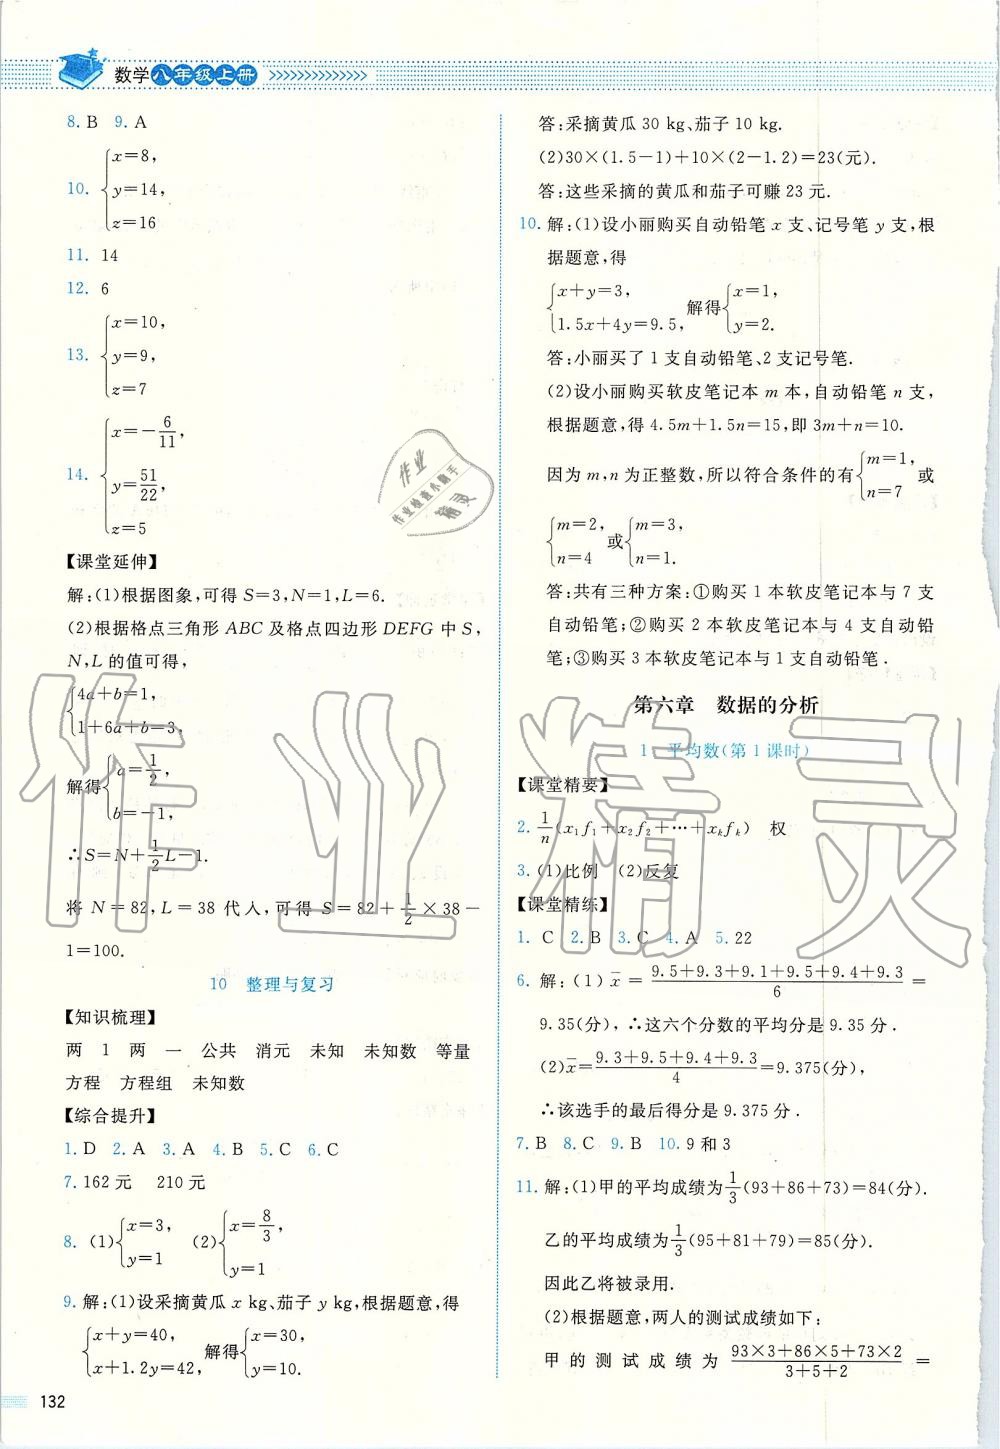 数学八年级上册
8. B 9. A
10. {x=8,
y=14,
z=16
11. 14
12. 6
13. {x=10,
y=9,
z=7
14. {x=-6/11,
y=51/22,
z=5
【课堂延伸】
解:(1)根据图象,可得 S=3,N=1,L=6.
(2)根据格点三角形 ABC 及格点四边形 DEFG 中 S,
N,L 的值可得,
{4a+b=1,
1+6a+b=3,
解得{a=1/2,
b=-1,
∴S=N+1/2L-1.
将 N=82,L=38 代人,可得 S=82+1/2×38-
1=100.
10 整理与复习
【知识梳理】
两 1 两 一 公共 消元 未知 未知数 等量
方程 方程组 未知数
【综合提升】
1. D 2. A 3. A 4. B 5. C 6. C
7. 162 元 210 元
8. (1){x=3,
y=1 (2){x=8/3,
y=1
9. 解:(1)设采摘黄瓜 x kg、茄子 y kg,根据题意,得
{x+y=40,
x+1.2y=42, 解得{x=30,
y=10.
132
答:采摘黄瓜 30 kg、茄子 10 kg.
(2)30×(1.5-1)+10×(2-1.2)=23(元).
答:这些采摘的黄瓜和茄子可赚 23 元.
10. 解:(1)设小丽购买自动铅笔 x 支、记号笔 y 支,根
据题意,得
{x+y=3,
1.5x+4y=9.5, 解得{x=1,
y=2.
答:小丽买了 1 支自动铅笔、2 支记号笔.
(2)设小丽购买软皮笔记本 m 本,自动铅笔 n 支,
根据题意,得 4.5m+1.5n=15,即 3m+n=10.
因为 m,n 为正整数,所以符合条件的有{m=1,
n=7 或
{m=2,
n=4 或{m=3,
n=1.
答:共有三种方案:①购买 1 本软皮笔记本与 7 支
自动铅笔;②购买 2 本软皮笔记本与 4 支自动铅
笔;③购买 3 本软皮笔记本与 1 支自动铅笔.
第六章 数据的分析
1 平均数(第 1 课时)
【课堂精要】
2. 1/n(x₁f₁+x₂f₂+…+xₖfₖ) 权
3. (1)比例 (2)反复
【课堂精练】
1. C 2. B 3. C 4. A 5. 22
6. 解:(1) x̄=(9.5+9.3+9.1+9.5+9.4+9.3)/6=
9.35(分),∴这六个分数的平均分是 9.35 分.
(2)x̄=(9.3+9.5+9.4+9.3)/4=9.375(分),
∴该选手的最后得分是 9.375 分.
7. B 8. C 9. B 10. 9 和 3
11. 解:(1)甲的平均成绩为1/3(93+86+73)=84(分).
乙的平均成绩为1/3(95+81+79)=85(分).
因此乙将被录用.
(2)根据题意,两人的测试成绩如下:
甲的测试成绩为(93×3+86×5+73×2)/(3+5+2)=
作业精灵
作业
作业检查小助手
精灵